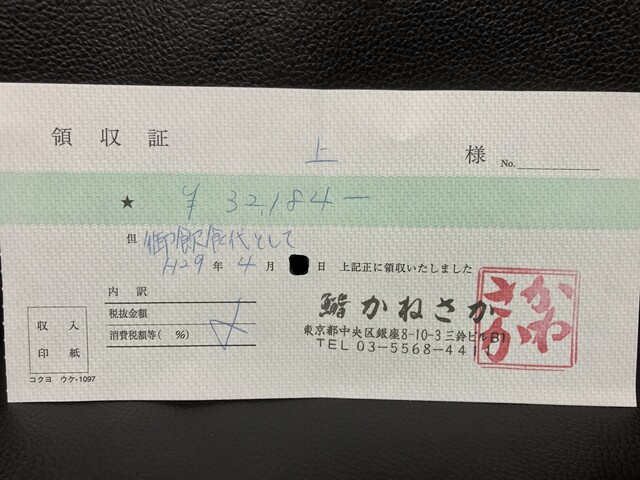 領収証
上 様 No.
★ ¥ 32,184 —
但 御飲食代として
H29 年 4 月 日 上記正に領収いたしました
内訳
税抜金額
消費税額等( %)
収入
印紙
コクヨ ウケ-1097
鮨 かねさか
東京都中央区銀座8-10-3三鈴ビルB1
TEL 03-5568-4411
かね
さか